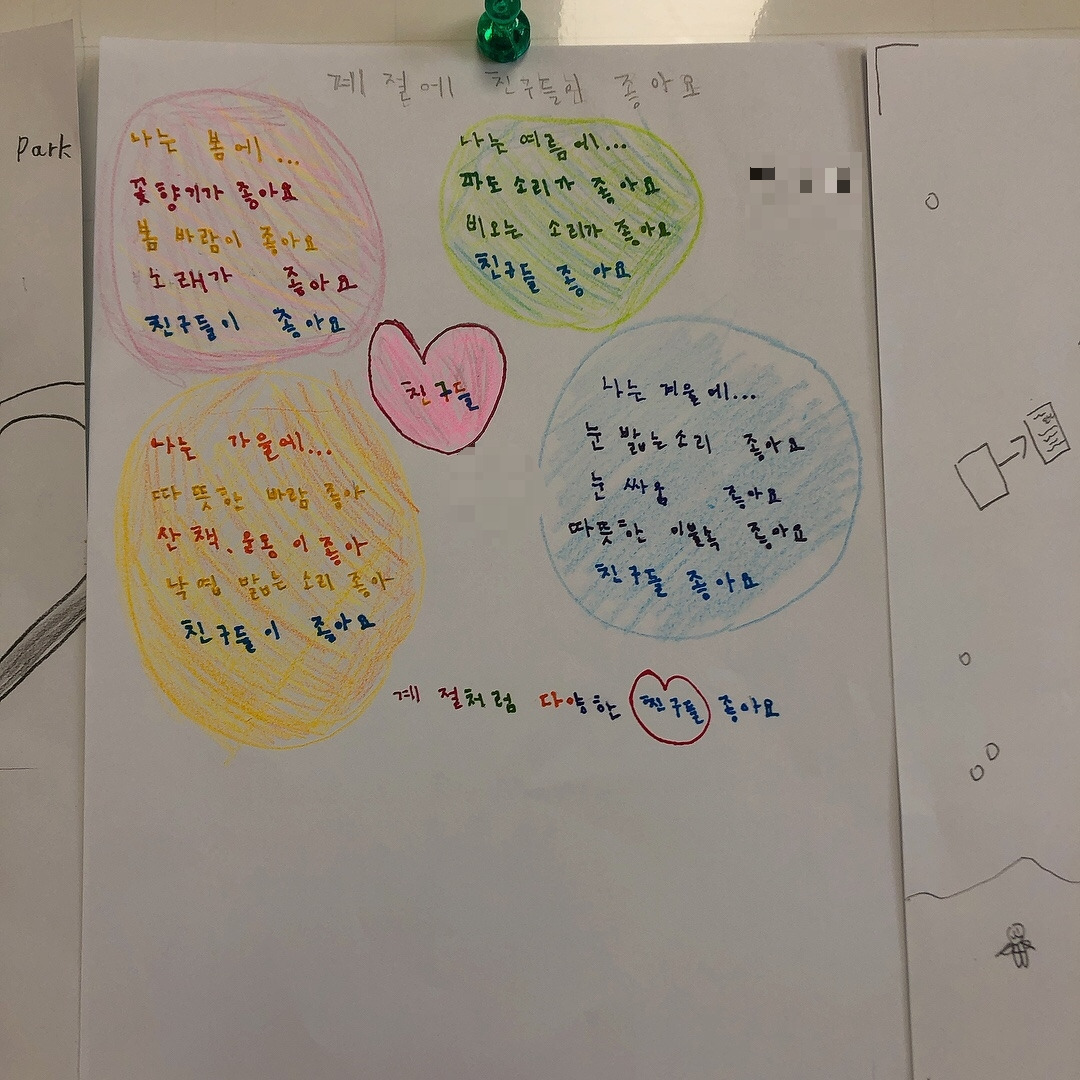 Park
계절에 친구들이 좋아요
나는 봄에...
꽃향기가 좋아요
봄 바람이 좋아요
노래가 좋아요
친구들이 좋아요
나는 여름에...
파도 소리가 좋아요
비오는 소리가 좋아요
친구들 좋아요
친구들
나는 가을에...
따뜻한 바람 좋아
산책, 운동이 좋아
낙엽 밟는 소리 좋아
친구들이 좋아요
나는 겨울에...
눈 밟는소리 좋아요
눈 싸움 좋아요
따뜻한 이불속 좋아요
친구들 좋아요
계절처럼 다양한 친구들 좋아요